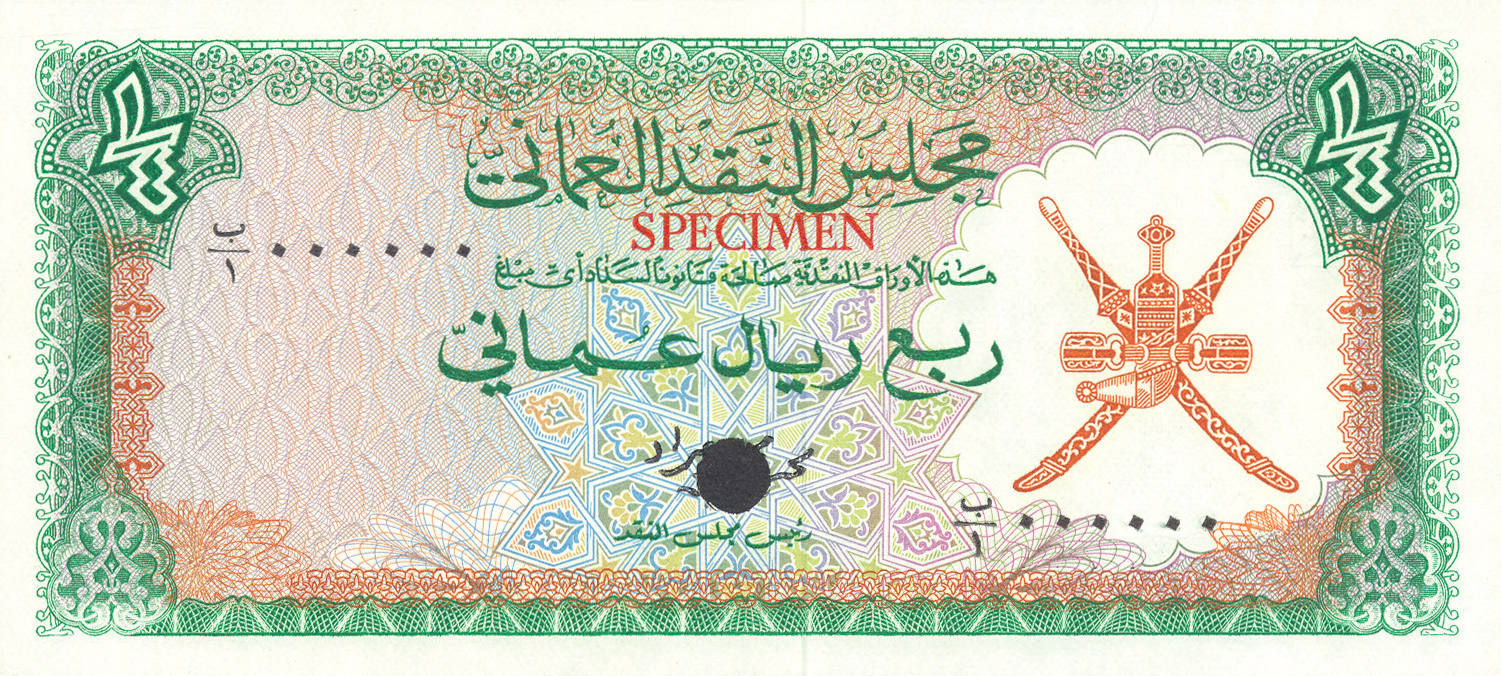 ١/٤
١/٤
مَجْلِسُ النَّقْدِ العُمَانيّ
SPECIMEN
ب/١ ٠٠٠٠٠٠
هَذِهِ الأوْرَاقُ النَّقْدِيَّة صَالِحَة قَانُونًا لِسَدَادِ أيّ مَبْلَغ
ربع ريال عُماني
رئيس مجلس النقد
ب/١ ٠٠٠٠٠٠